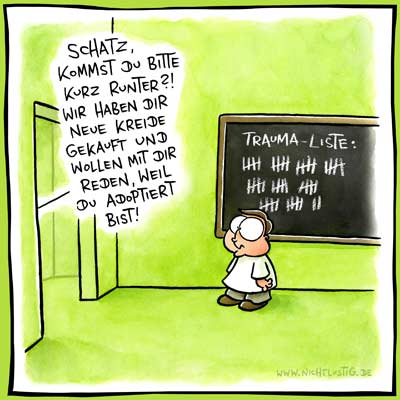 SCHATZ,
KOMMST DU BITTE
KURZ RUNTER?!
WIR HABEN DIR
NEUE KREIDE
GEKAUFT UND
WOLLEN MIT DIR
REDEN, WEIL
DU ADOPTIERT
BIST!
TRAUMA-LISTE:
WWW.NICHTLUSTIG.DE